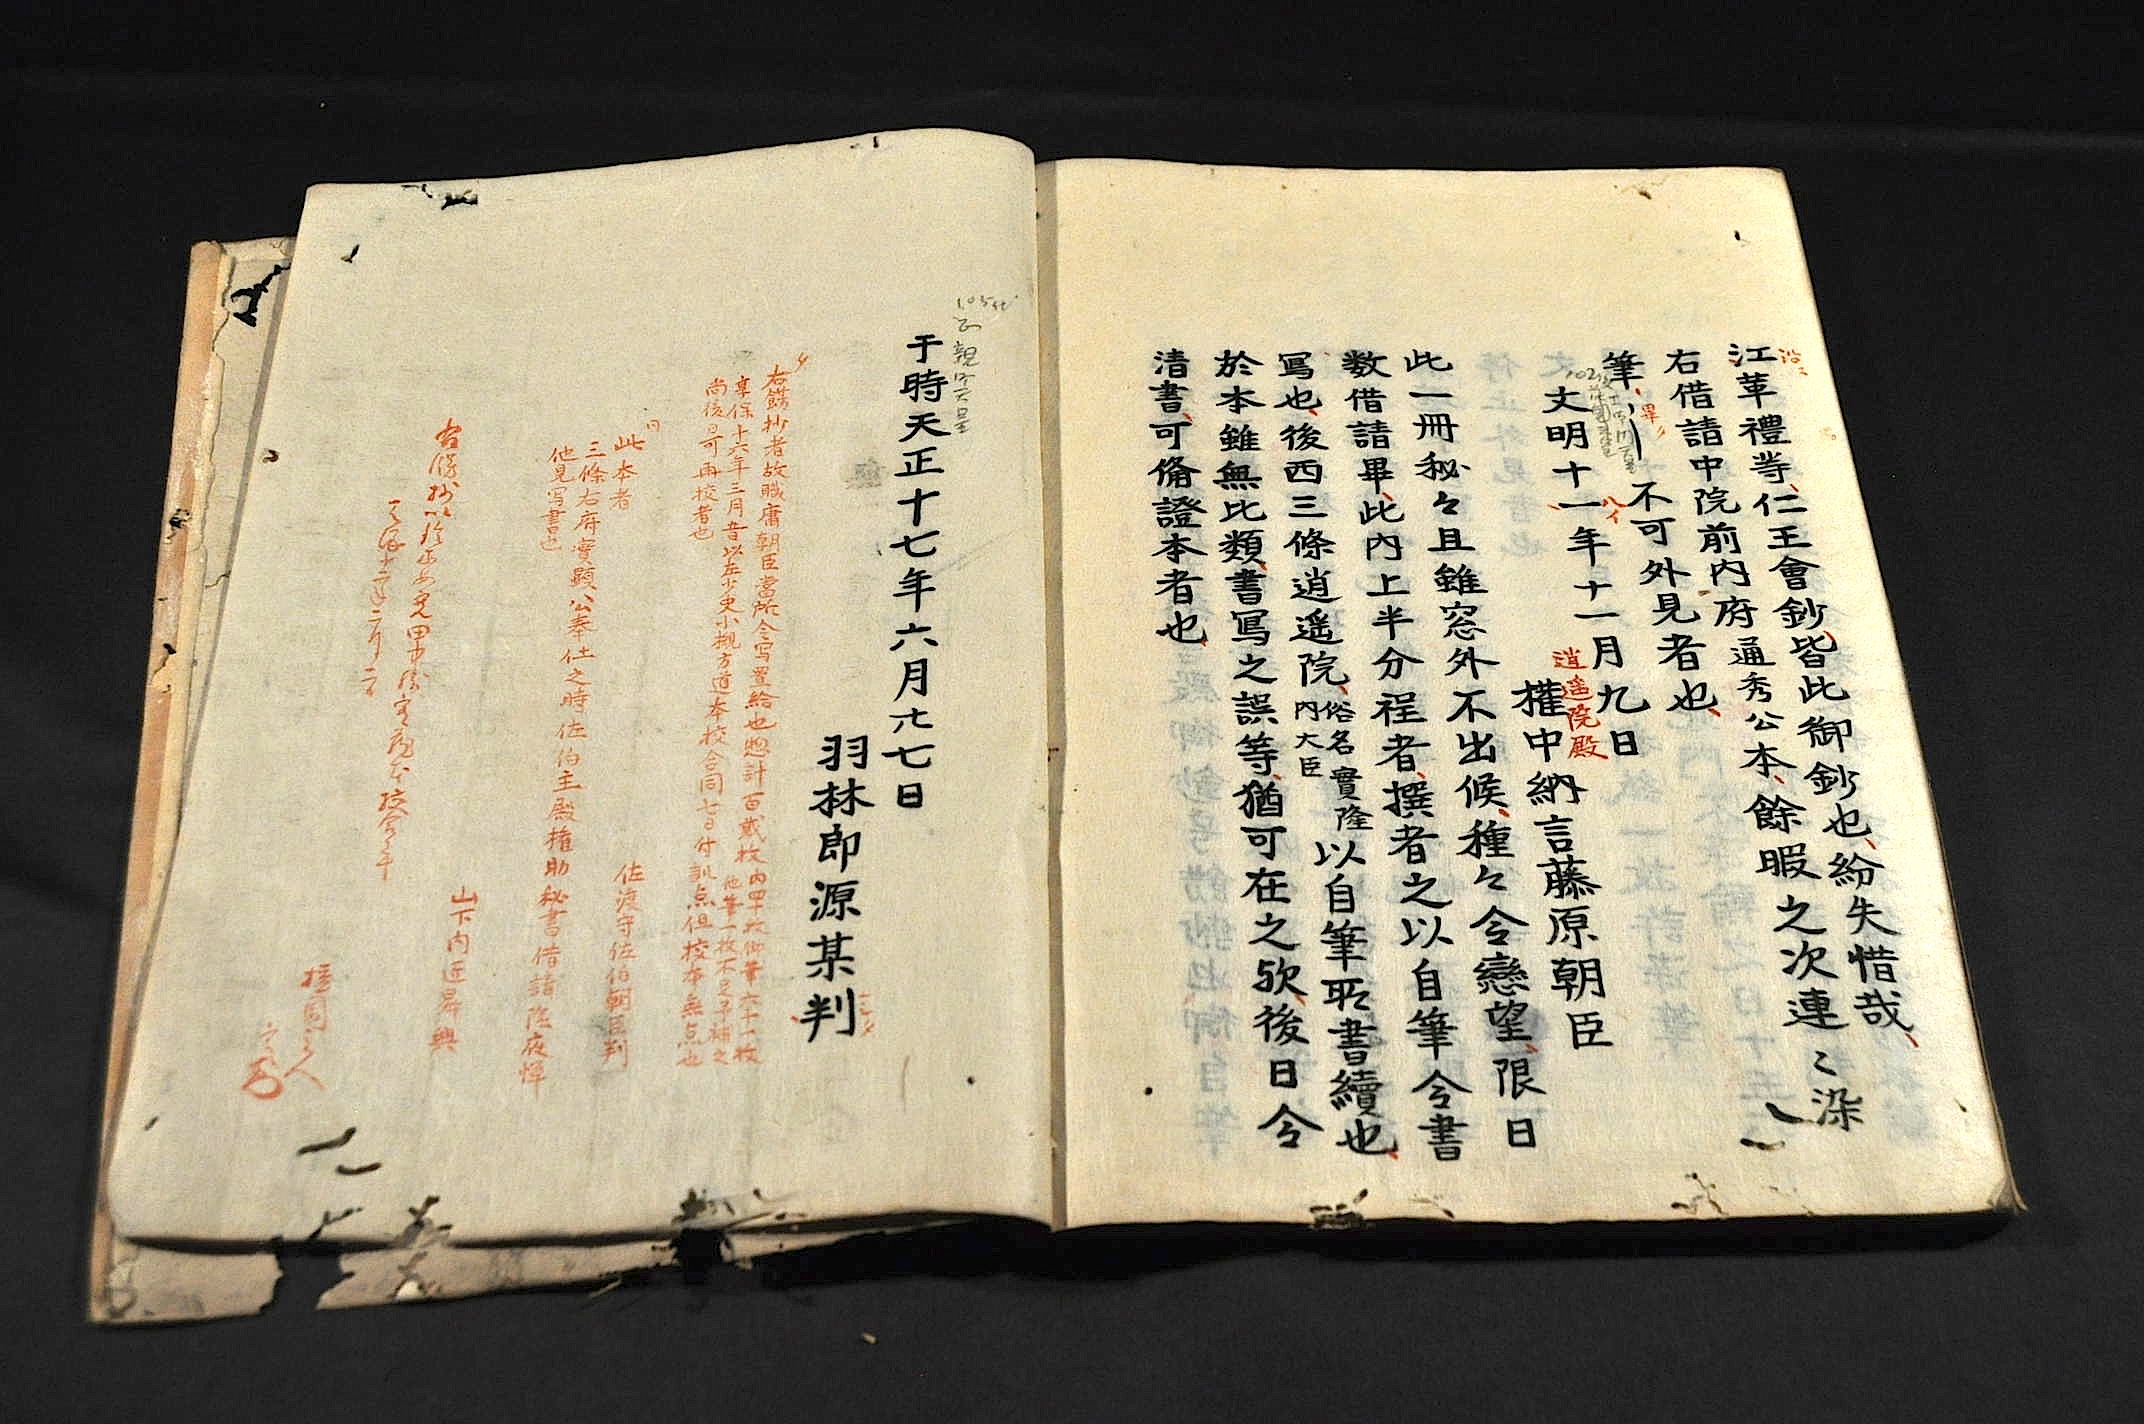 江革禮等仁王會鈔皆此御鈔也紛失惜哉
右借請中院前内府通秀公本餘暇之次連〻染
筆 不可外見者也
畢
文明十一年十一月九日
八イ
逍遥院殿
權中納言藤原朝臣
此一冊秘々且雖窓外不出候種々令戀望限日
数借請畢此内上半分程者撰者之以自筆令書
写也後西三條逍遥院俗名實隆内大臣以自筆所書續也
於本雖無比類書写之誤等猶可在之欤後日令
清書可備證本者也
于時天正十七年六月廿七日
羽林郎源某判
右餝抄者故職庸朝臣當所令写置給也惣計百貮枚内四十枚御筆六十一枚
他筆一枚不足予補之
享保十六年三月 以左少史小槻方道本校合同七日付訓点但校本無点也
尚後日可再校者也
此本者
佐渡守佐伯朝臣判
三條右府實顕公奉仕之時佐伯主殿権助秘書借請
他見写書也
山下内匠昇興